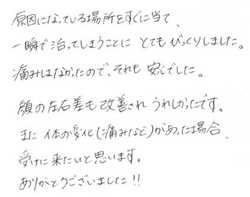 原因になっている場所をすぐに当て、
一瞬で治ってしまうことに とてもびっくりしました。
痛みはなかったので、それも 安心でした。
顔の左右差も改善され うれしかったです。
また 体の変化(痛みなど)があった場合、
受けに来たいと思います。
ありがとうございました!!